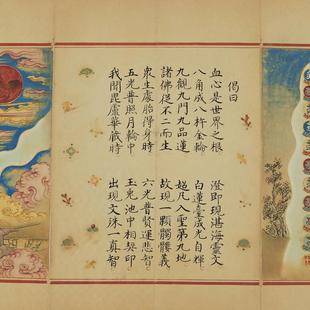 偈曰
血心是世界之根　澄即現湛海靈文
八角成八杵金輪　白蓮臺威光自輝
九觀九門九品運　超凡入聖第九地
諸佛從不二而生　故現一顆髑髏義
衆生處胎得身時　六光普賢運悲智
五光普照月輪中　玉兔池中相契印
我聞毘盧華藏時　出現文殊一真智